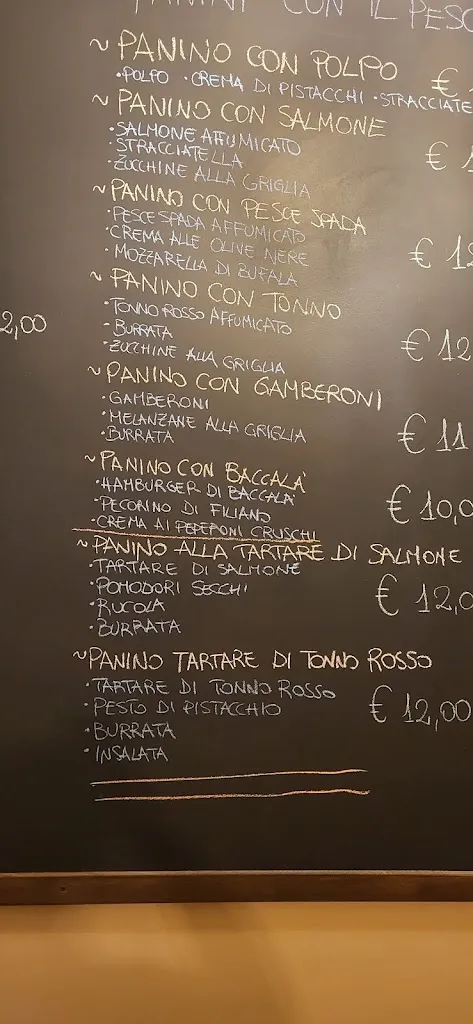 PANINI CON IL PESC
~ PANINO CON POLPO €
• POLPO • CREMA DI PISTACCHI • STRACCIATE
~ PANINO CON SALMONE
• SALMONE AFFUMICATO
• STRACCIATELLA € 1
• ZUCCHINE ALLA GRIGLIA
~ PANINO CON PESCE SPADA
• PESCE SPADA AFFUMICATO
• CREMA ALLE OLIVE NERE € 12
• MOZZARELLA DI BUFALA
~ PANINO CON TONNO
• TONNO ROSSO AFFUMICATO
2,00
• BURRATA € 12
• ZUCCHINE ALLA GRIGLIA
~ PANINO CON GAMBERONI
• GAMBERONI
• MELANZANE ALLA GRIGLIA € 11
• BURRATA
~ PANINO CON BACCALÀ
• HAMBURGER DI BACCALA'
• PECORINO DI FILIANO € 10,0
• CREMA AI PEPERONI CRUSCHI
~ PANINO ALLA TARTARE DI SALMONE
• TARTARE DI SALMONE
• POMODORI SECCHI € 12,0
• RUCOLA
• BURRATA
~ PANINO TARTARE DI TONNO ROSSO
• TARTARE DI TONNO ROSSO
• PESTO DI PISTACCHIO € 12,00
• BURRATA
• INSALATA